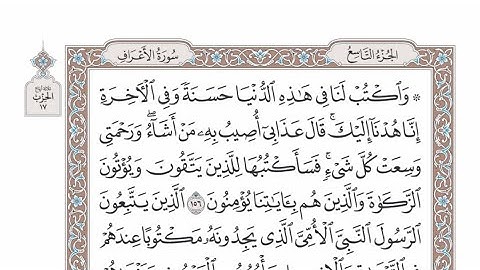 الجُزْءُ التَّاسِعُ
سُورَةُ الأَعْرَافِ
الحِزْبُ
١٧
۞ وَٱكْتُبْ لَنَا فِي هَٰذِهِ ٱلدُّنْيَا حَسَنَةً وَفِي ٱلْأٓخِرَةِ
إِنَّا هُدْنَآ إِلَيْكَۚ قَالَ عَذَابِيٓ أُصِيبُ بِهِۦ مَنْ أَشَآءُۖ وَرَحْمَتِي
وَسِعَتْ كُلَّ شَيْءٍۚ فَسَأَكْتُبُهَا لِلَّذِينَ يَتَّقُونَ وَيُؤْتُونَ
ٱلزَّكَوٰةَ وَٱلَّذِينَ هُم بِـَٔايَٰتِنَا يُؤْمِنُونَ ١٥٦ ٱلَّذِينَ يَتَّبِعُونَ
ٱلرَّسُولَ ٱلنَّبِيَّ ٱلْأُمِّيَّ ٱلَّذِي يَجِدُونَهُۥ مَكْتُوبًا عِندَهُمْ